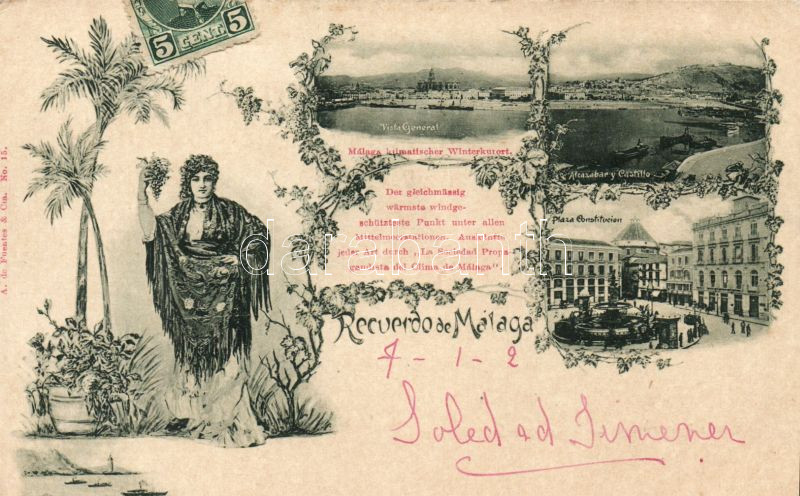 5 CENT. 5
A. de Fuentes & Cia. No. 15.
Vista General
Alcazabar y Castillo
Málaga klimatischer Winterkurort.
Der gleichmässig
wärmste windge-
schützteste Punkt unter allen
Mittelmeerstationen. Auskünfte
jeder Art durch „La Sociedad Propa-
gandista del Clima de Málaga"
Plaza Constitucion
Recuerdo de Málaga
7-1-2
Soledad Jimener
darabanth